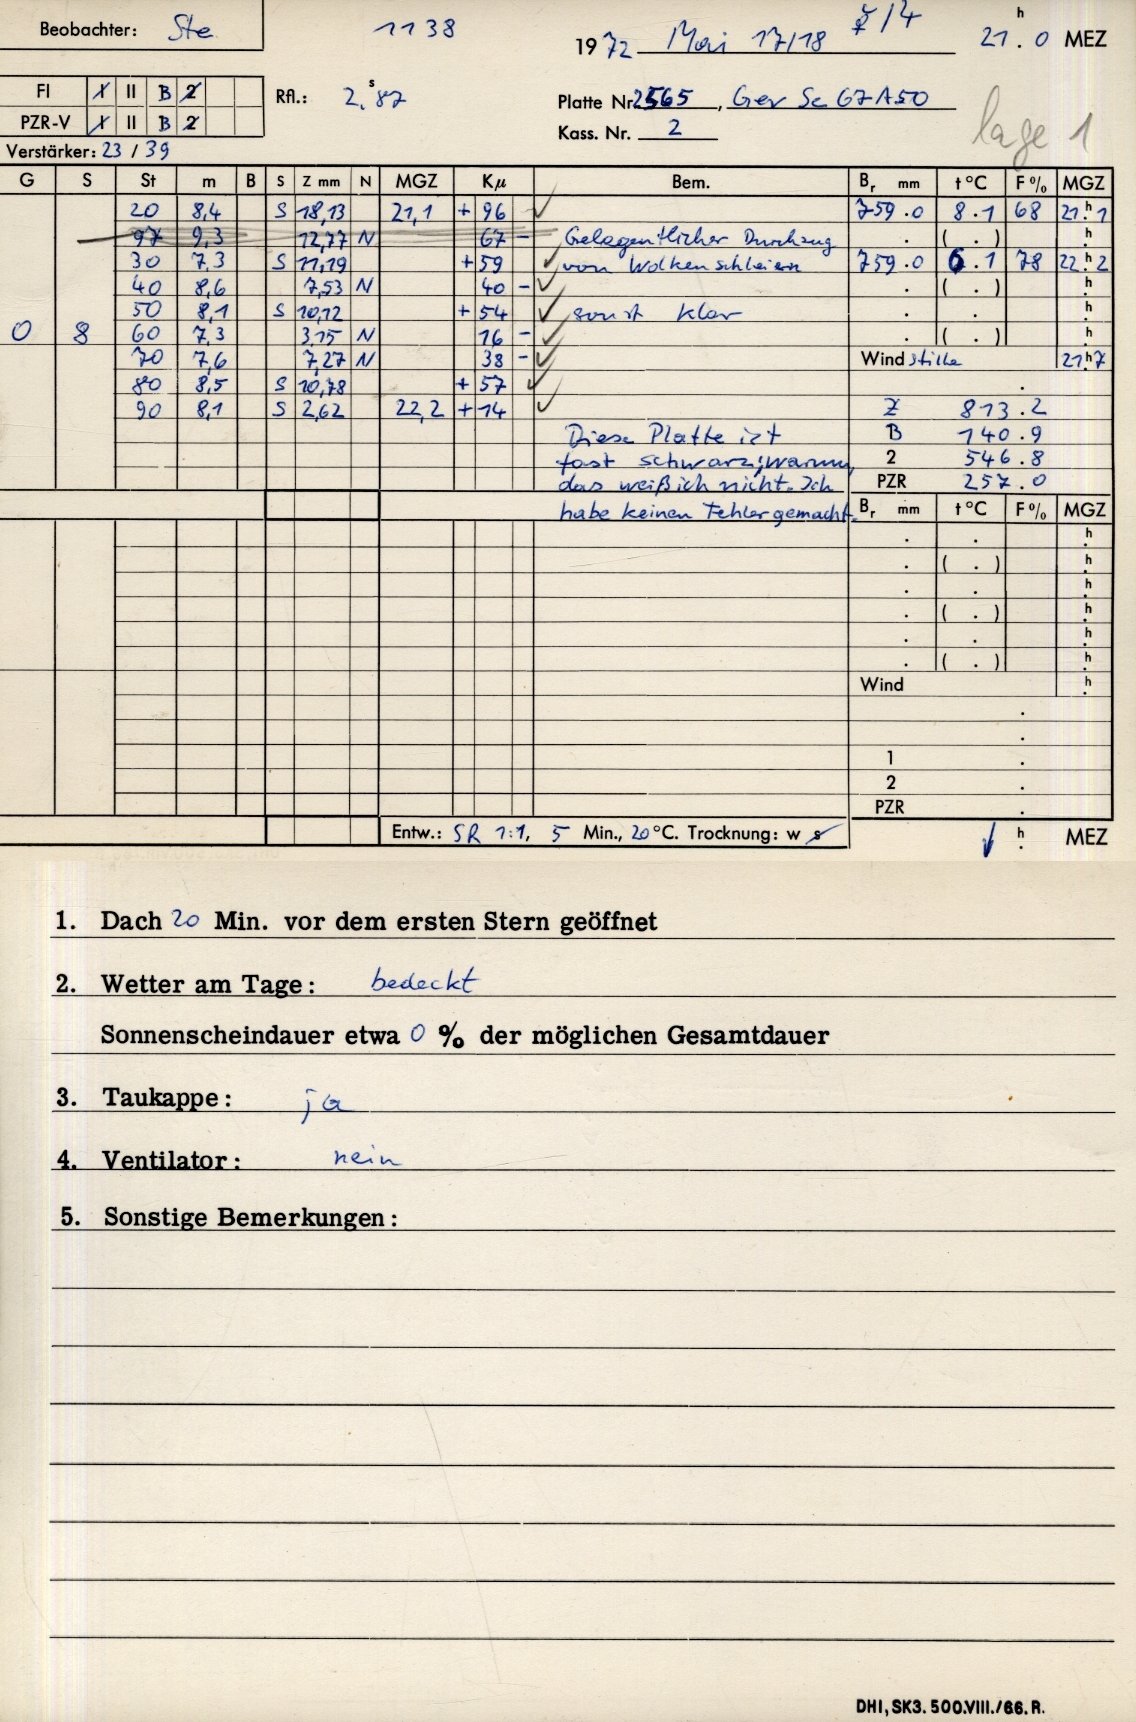 Beobachter: Ste 1138 1972 Mai 17/18 4 21.h0 MEZ
FI I II B 2 Rfl.: 2,s87 Platte Nr. 2565, Gev Sc 67A50
PZR-V I II B 2 Kass. Nr. 2 lage 1
Verstärker: 23 / 39
G S St m B S Z mm N MGZ Kμ Bem. Br mm t°C F% MGZ
20 8,4 S 18,13 21,1 + 96 759.0 8.1 68 21h.1
97 9,3 12,77 N 67 - Gelegentlicher Durchzug . ( . ) h.
30 7,3 S 11,19 + 59 von Wolkenschleiern 759.0 6.1 78 22h.2
40 8,6 7,53 N 40 - . ( . ) h.
50 8,1 S 10,12 + 54 sonst klar . . h.
0 8 60 7,3 3,15 N 16 - . ( . ) h.
70 7,6 7,27 N 38 - Wind stille 21h.7
80 8,5 S 10,78 + 57 .
90 8,1 S 2,62 22,2 + 14 Z 813.2
Diese Platte ist B 140.9
fast schwarz, warum, 2 546.8
das weiß ich nicht. Ich PZR 257.0
habe keinen Fehler gemacht. Br mm t°C F% MGZ
. . h.
. ( . ) h.
. . h.
. ( . ) h.
. . h.
. ( . ) h.
Wind h.
.
.
1 .
2 .
PZR .
Entw.: SR 1:1, 5 Min., 20°C. Trocknung: w s h. MEZ
1. Dach 20 Min. vor dem ersten Stern geöffnet
2. Wetter am Tage: bedeckt
Sonnenscheindauer etwa 0 % der möglichen Gesamtdauer
3. Taukappe: ja
4. Ventilator: nein
5. Sonstige Bemerkungen:
DHI, SK3. 500.VIII./66. R.